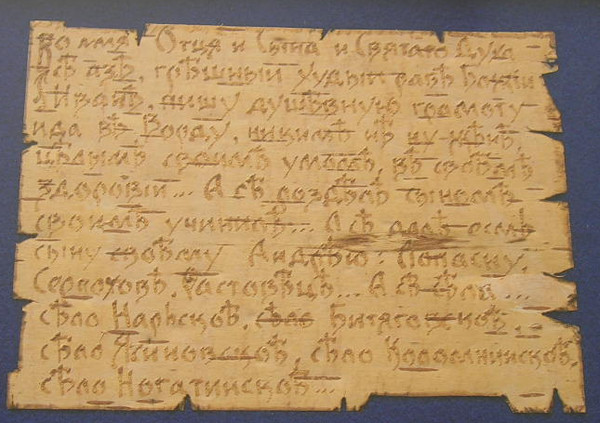 Во имя Отця и Сына и Святаго Духа
Сѣ азъ, грѣшный худый рабъ Божіи
Иванъ, пишу душѣвную грамоту
ида въ Ворду, никимъ нѣ ну-жѣнъ,
цѣлымъ своимъ умомъ, въ своѣмъ
здоровіи... А сѣ роздѣлъ сыномъ
своимъ учинилъ... А сѣ далъ есмь
сыну своѣму Андрѣю: Лопасну,
Серпоховъ, Растовѣцъ... А сѣ сѣла...
сѣло Нарьскоѣ, сѣло Битяговскоѣ,
сѣло Ясиновскоѣ, сѣло Коломнинскоѣ,
сѣло Ногатинскоѣ...